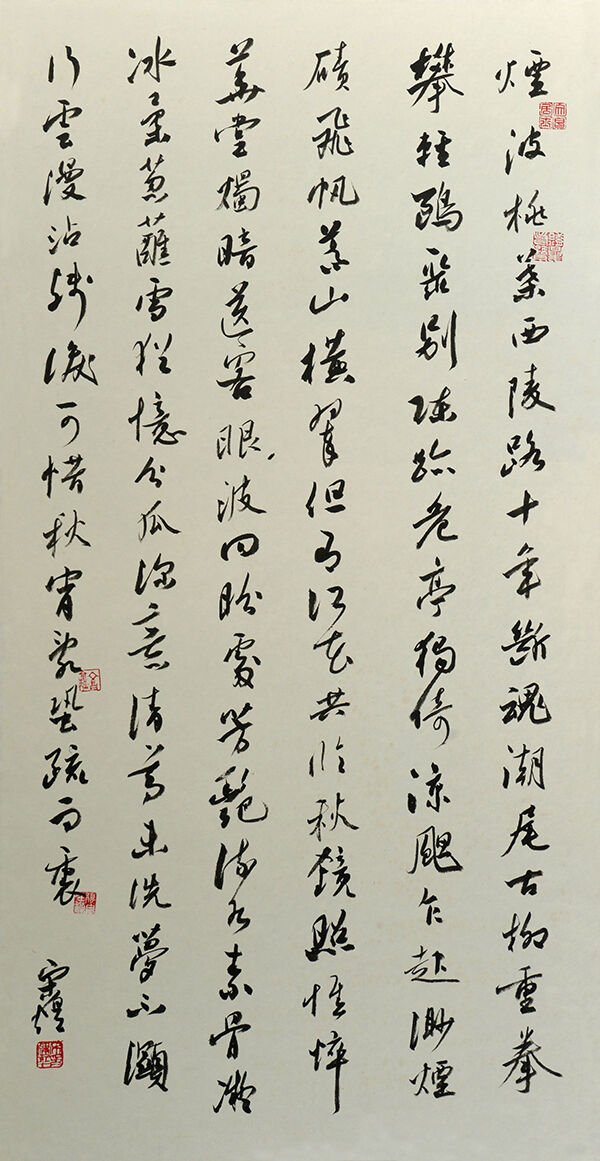 煙波桃葉西陵路十年斷魂潮尾古柳重拳
攀輕鷗聚別陳跡危亭獨倚涼颸乍起渺煙
磧飛帆暮山橫翠但有江花共臨秋鏡照憔悴
華堂燭暗送客眼波回盼處芳艷流水素骨凝
冰柔蔥蘸雪猶憶分瓜深意清尊未洗夢不濕
行雲漫沾殘淚可惜秋宵亂蛩疏雨裏